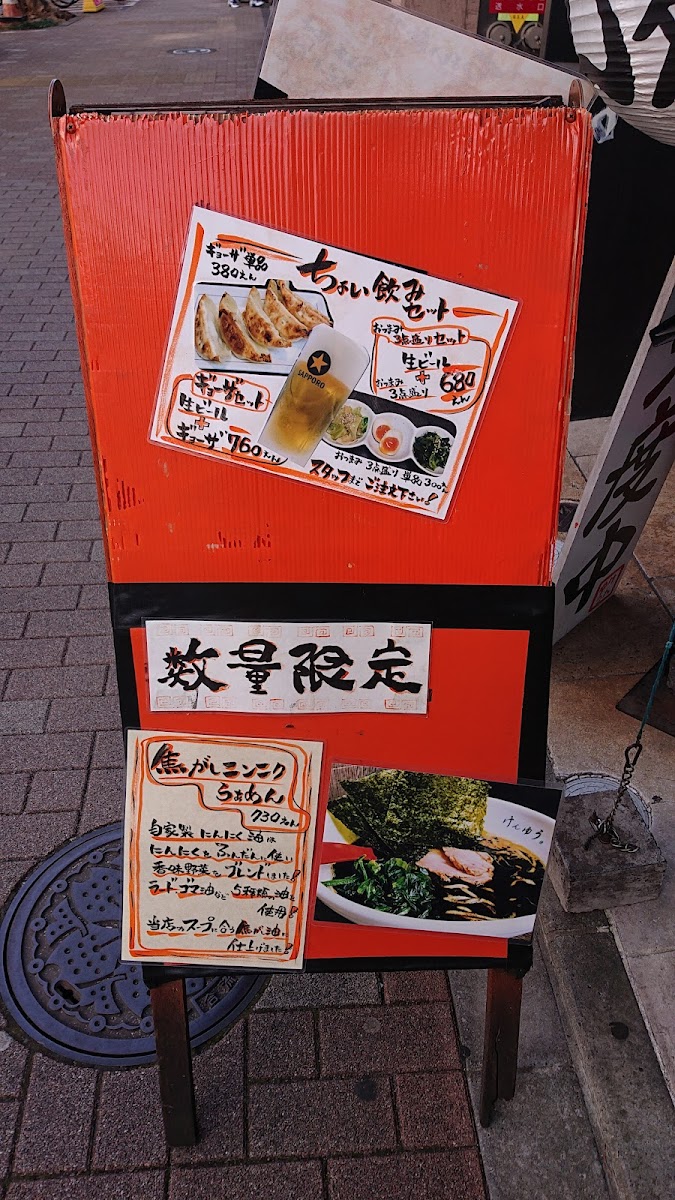 送水口
ギョーザ単品
380えん
ちょい飲み
セット
おつまみ
3点盛りセット
生ビール
+
おつまみ
3点盛り
680
えん
SAPPORO
ギョーザセット
生ビール
+
ギョーザ 760えん
おつまみ3点盛り単品300えん
スタッフまでご注文下さい!
数量限定
焦がしニンニク
らぁめん
730えん
自家製にんにく油は
にんにくをふんだんに使い
香味野菜をブレンドしました!
ラードゴマ油など5種類の油を
使用!
当店のスープに合う焦がし油に
仕上げました!
けんゆう。
度中